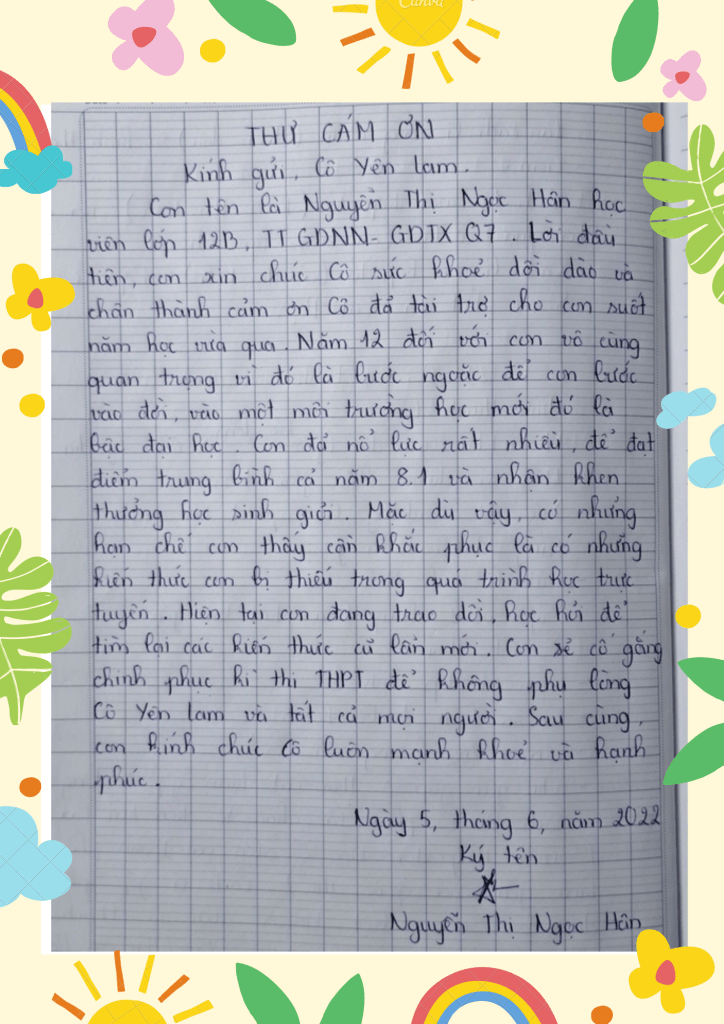 Canva
THƯ CẢM ƠN
Kính gửi, Cô Yên Lam.
Con tên là Nguyễn Thị Ngọc Hân học
viên lớp 12B, TT GDNN- GDTX Q7. Lời đầu
tiên, con xin chúc Cô sức khoẻ dồi dào và
chân thành cảm ơn Cô đả tài trợ cho con suốt
năm học vừa qua. Năm 12 đối với con vô cùng
quan trọng vì đó là bước ngoặc để con bước
vào đời, vào một môi trường học mới đó là
bậc đại học. Con đả nổ lực rất nhiều, để đạt
điểm trung bình cả năm 8.1 và nhận khen
thưởng học sinh giỏi. Mặc dù vậy, có những
hạn chế con thấy cần khắc phục là có những
kiến thức con bị thiếu trong quá trình học trực
tuyến. Hiện tại con đang trao dồi, học hỏi để
tìm lại các kiến thức cũ lẫn mới. Con sẻ cố gắng
chinh phục kì thi THPT để không phụ lòng
Cô Yên Lam và tất cả mọi người. Sau cùng,
con kính chúc Cô luôn mạnh khoẻ và hạnh
phúc.
Ngày 5, tháng 6, năm 2022
Ký tên
Nguyễn Thị Ngọc Hân